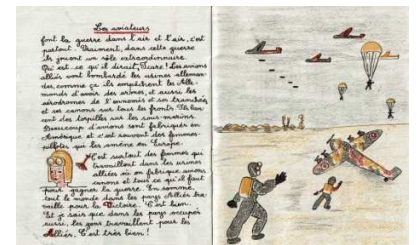 Les aviateurs
font la guerre dans l'air et l'air, c'est
partout. Vraiment, dans cette guerre
ils jouent un rôle extraordinaire.
Qu'est-ce qu'il dirait, Icare! Les avions
alliés vont bombarder les usines alleman-
des, comme ça ils empêchent les Alle-
mands d'avoir des armes, et aussi les
aérodromes de l'ennemi et ses tranchées
et ses canons sur tous les fronts. Ils lan-
cent des torpilles sur les sous-marins.
Beaucoup d'avions sont fabriqués en
Amérique et c'est souvent des femmes-
pilotes qui les amène en Europe.
C'est surtout des femmes qui
travaillent dans les usines
alliées où on fabrique avions
canons et tout ce qu'il faut
pour gagner la guerre. En somme,
tout le monde dans les pays Alliés tra-
vaille pour la Victoire. C'est bien.
Et je sais que dans les pays occupés
aussi, les gens travaillent pour les
Alliés. C'est très bien!